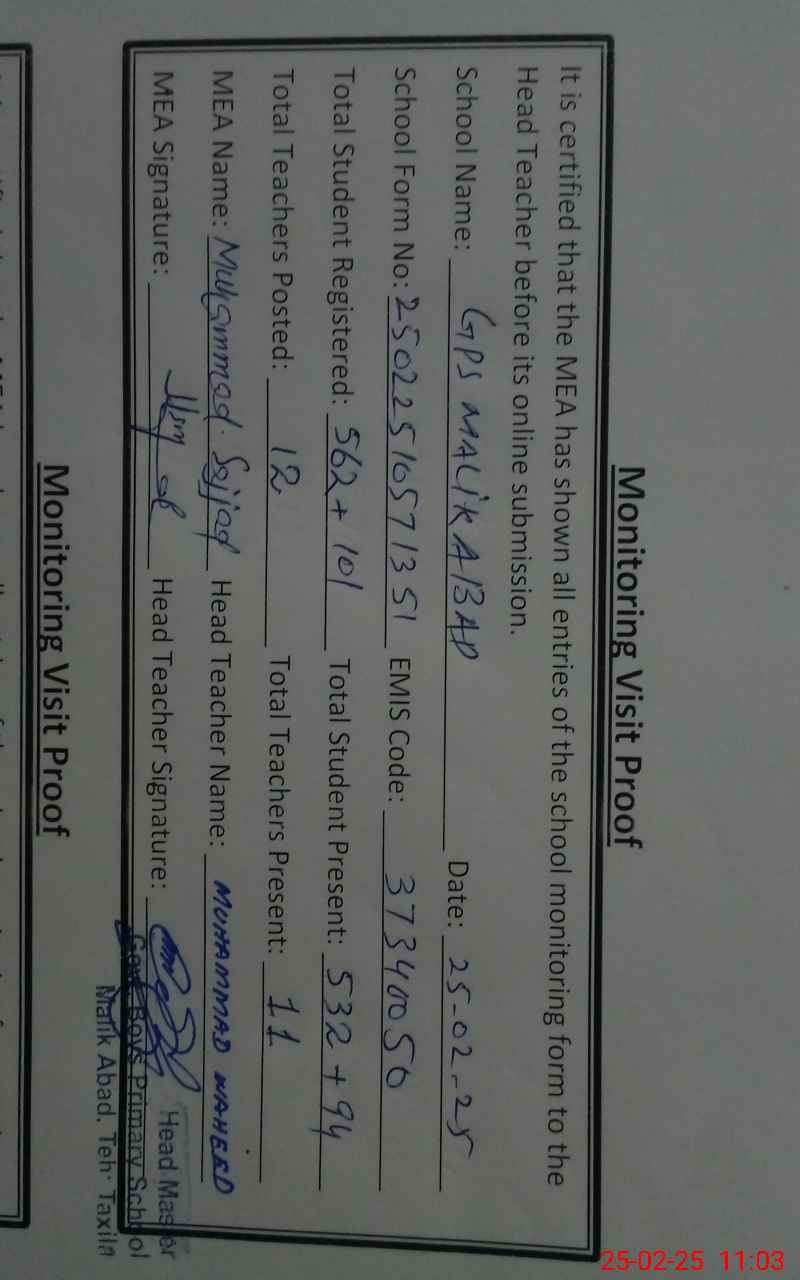 Monitoring Visit Proof
It is certified that the MEA has shown all entries of the school monitoring form to the
Head Teacher before its online submission.
School Name: GPS MALIK ABAD Date: 25-02-25
School Form No: 25022510571351 EMIS Code: 37340050
Total Student Registered: 562+101 Total Student Present: 532+94
Total Teachers Posted: 12 Total Teachers Present: 11
MEA Name: Muhammad Sajjad Head Teacher Name: MUHAMMAD WAHEED
MEA Signature: Head Teacher Signature:
Head Master
Govt. Boys Primary School
Malik Abad, Teh: Taxila
Monitoring Visit Proof
25-02-25 11:03